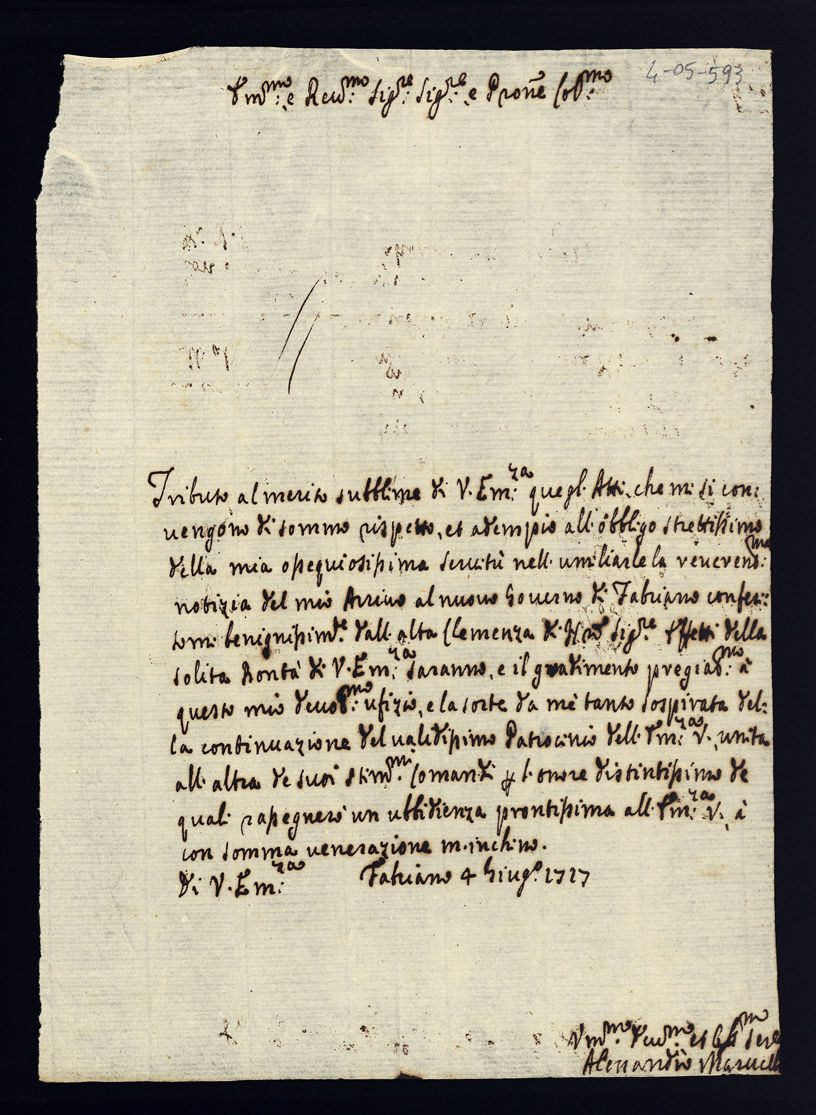 4-05-593
Em.mo: e Rev.mo: Sig.re: Sig.re: e Pro͞ne Col.mo:
Tributo al merito subblime di V. Em.za: quegl Atti, che mi si con:
vengono di sommo rispetto, et adempio all'obbligo strettissimo
della mia ossequiosissima servitù nell'umiliarle la reverend.ma:
notizia del mio Arrivo al nuovo Governo di Fabriano confer:
tomi benignissim.e dall'alta Clemenza di Sig.re Effetti della
solita Bontà di V. Em.za: saranno, e il gradimento pregiat.mo: à
questo mio devot.mo: ufizio, e la sorte da mè tanto sospirata del:
la continuazione del validissimo Patrocinio dell'Em.za: V., unita
all'altra de suoi stim.mi: Comandi p l'onore distintissimo de
quali rassegnerò un ubbidienza prontissima all'Em.za: V., à
con somma venerazione m'inchino.
Di V. Em.za: Fabriano 4 Giug.o 1727
Um.mo: Dev.mo: et Obl.mo Serv
Alessandro